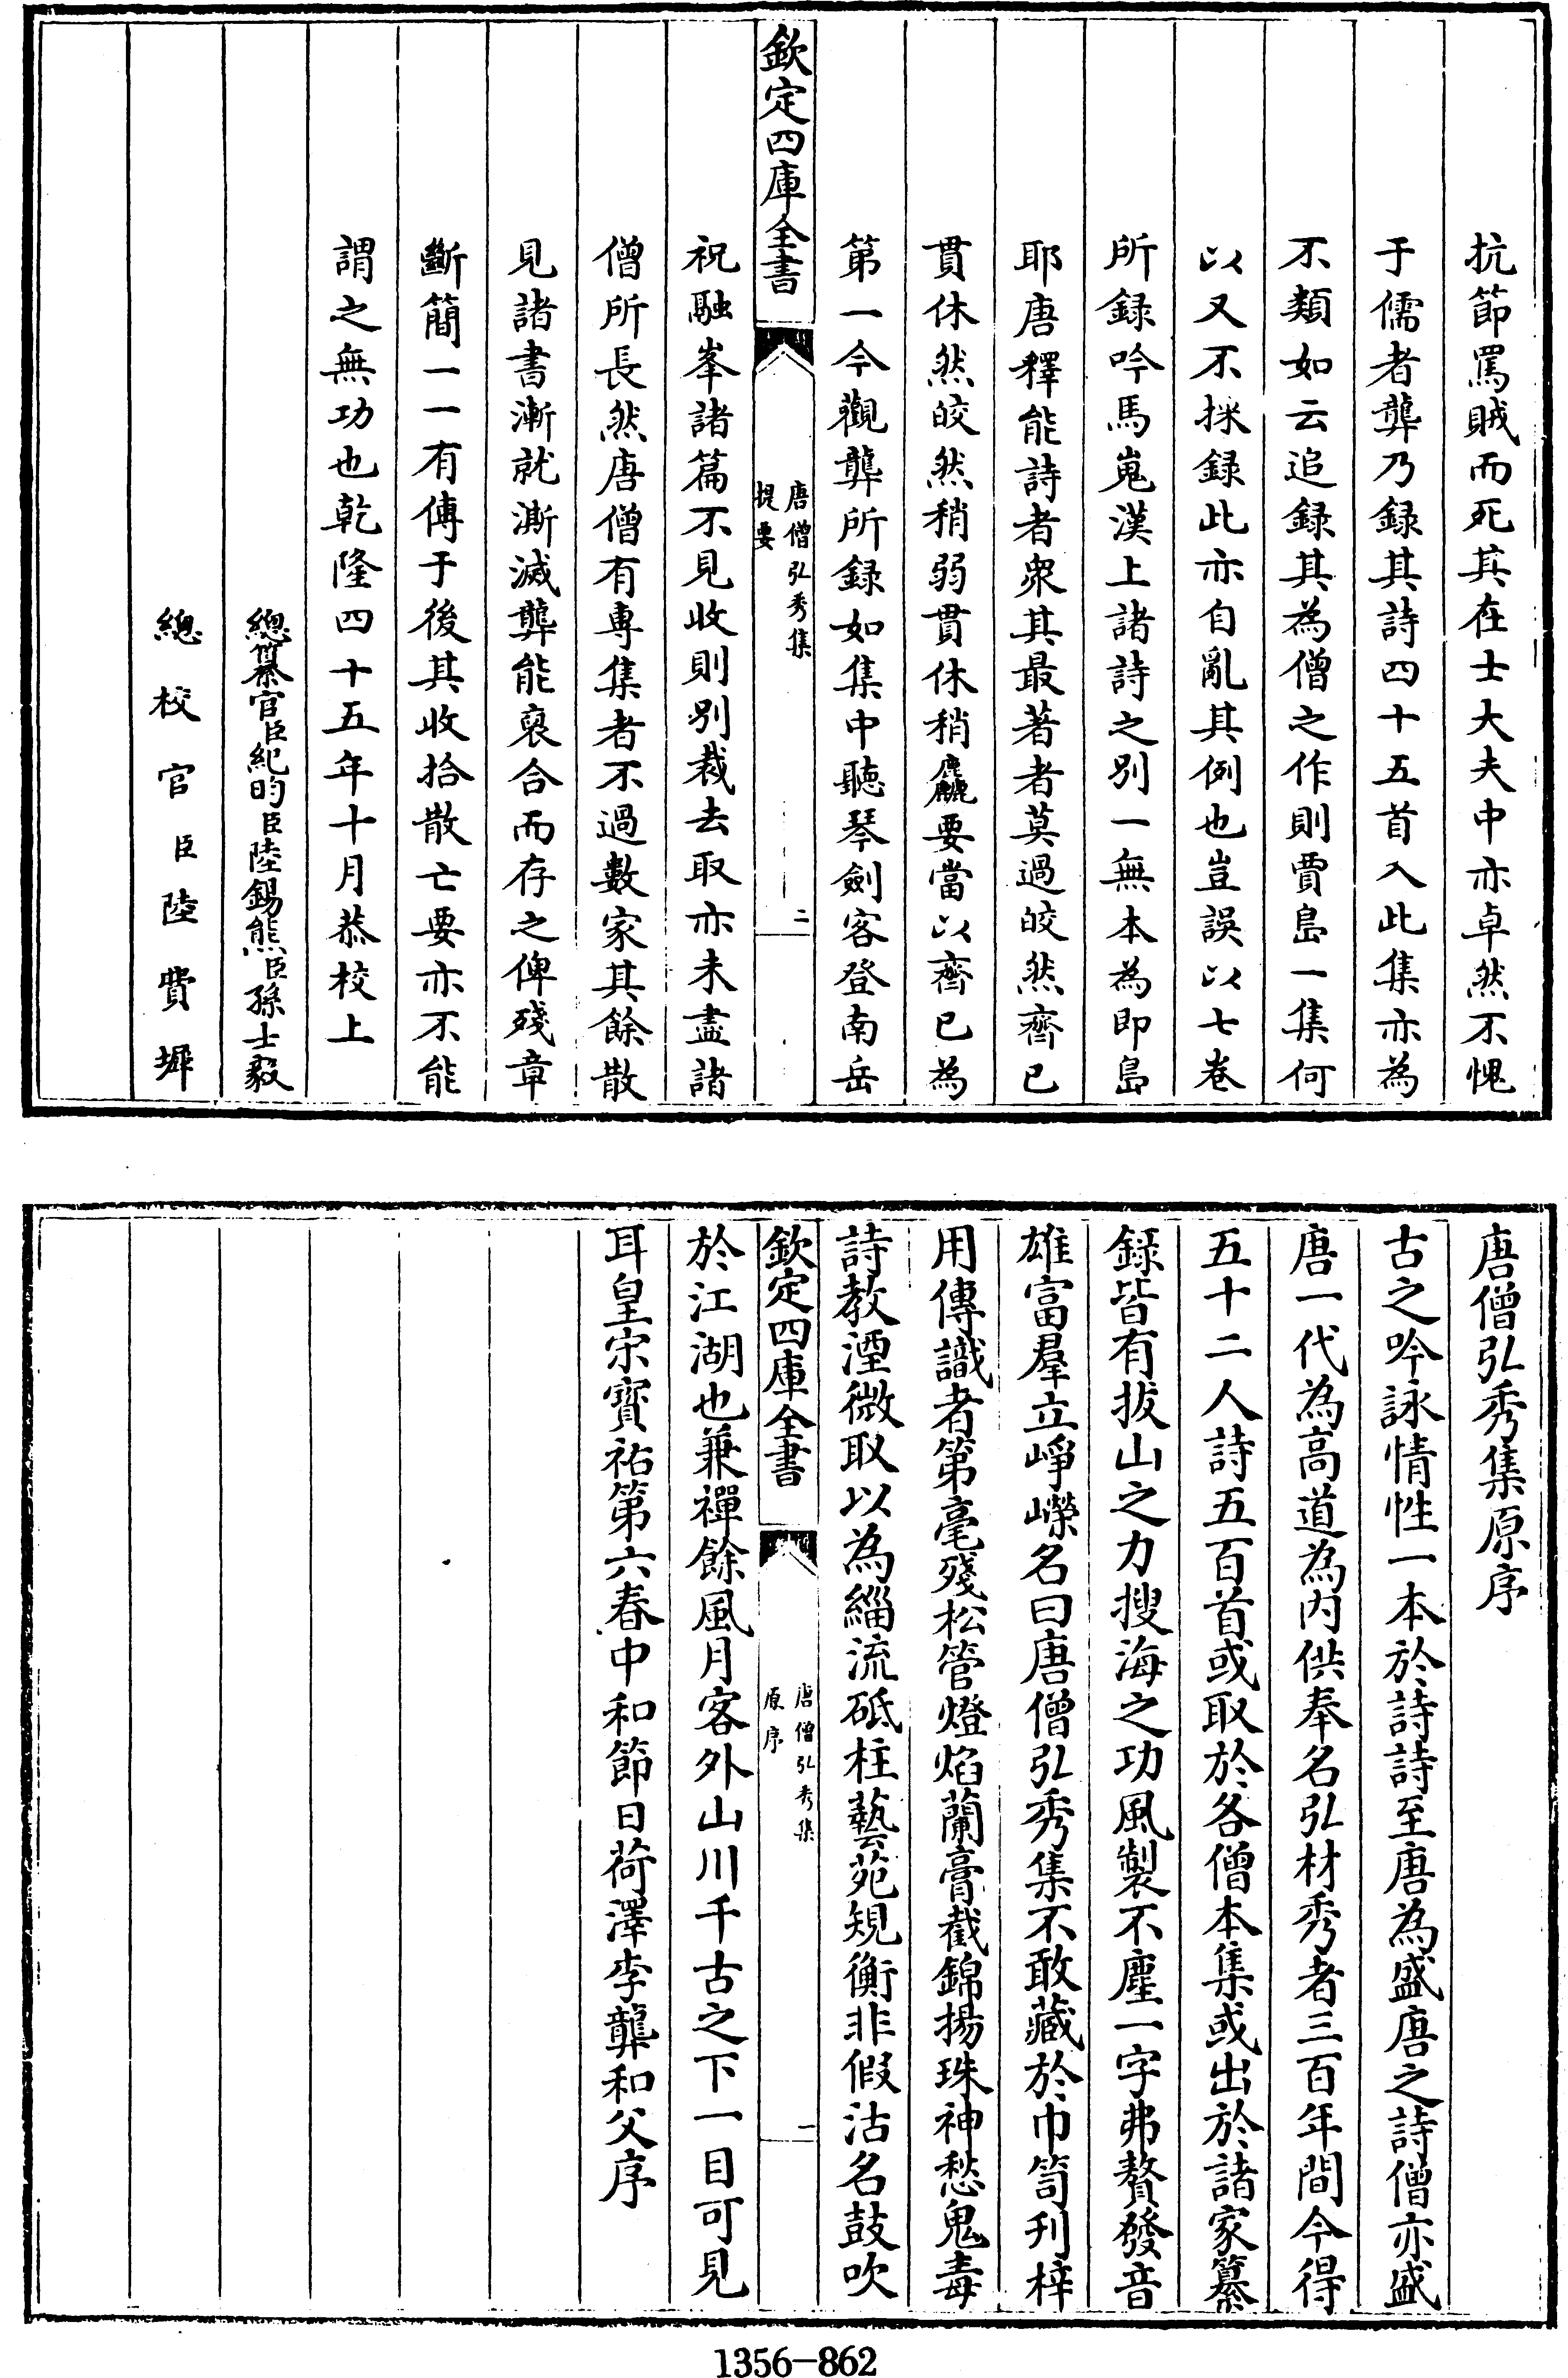 抗節罵賊而死其在士大夫中亦卓然不愧
于儒者龔乃録其詩四十五首入此集亦為
不類如云追録其為僧之作則賈島一集何
以又不採録此亦自亂其例也豈誤以七卷
所録吟馬嵬漢上諸詩之別一無本為即島
耶唐釋能詩者衆其最著者莫過皎然齊已
貫休然皎然稍弱貫休稍麤要當以齊已為
第一今觀龔所録如集中聽琴劍客登南岳
欽定四庫全書
唐僧弘秀集
提要
二
祝融峯諸篇不見收則别裁去取亦未盡諸
僧所長然唐僧有專集者不過數家其餘散
見諸書漸就澌滅龔能裒合而存之俾殘章
斷簡一一有傳于後其收拾散亡要亦不能
謂之無功也乾隆四十五年十月恭校上
總纂官臣紀昀臣陸錫熊臣孫士毅
總校官臣陸費墀
唐僧弘秀集原序
古之吟詠情性一本於詩詩至唐為盛唐之詩僧亦盛
唐一代為高道為内供奉名弘材秀者三百年間今得
五十二人詩五百首或取於各僧本集或出於諸家纂
録皆有拔山之力搜海之功風製不塵一字弗贅發音
雄富羣立崢嶸名曰唐僧弘秀集不敢藏於巾笥刋梓
用傳識者第毫殘松管燈焰蘭膏截錦揚珠神愁鬼毒
詩教湮微取以為緇流砥柱藝苑規衡非假沽名鼓吹
欽定四庫全書
唐僧弘秀集
原序
一
於江湖也兼禪餘風月客外山川千古之下一目可見
耳皇宋寳祐第六春中和節日荷澤李龔和父序
1356-862